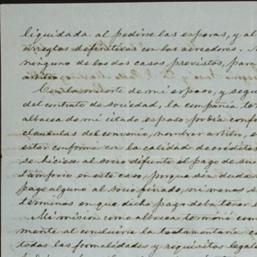 liquidada al pedirse las esperas, y al
arreglos definitivos con los acreedores. N
ninguno de los dos casos previstos, para
arbitro.
Con la muerte de mi esposo, y segun
del contrato de sociedad, la compañia te
albacea de mi citado esposo podia conform
clausulas del convenio, nombrar arbitro, e
estar conforme con la calidad de crédito
se hiciese al socio difunto el pago de su
tampoco en este caso, porque sin duda
pago alguno al socio finado, ni menos s
términos en que dicho pago deba tener
Mi mision como albacea terminó con
mente al concluirse la testamentaria c
todas las formalidades y requisitos legale